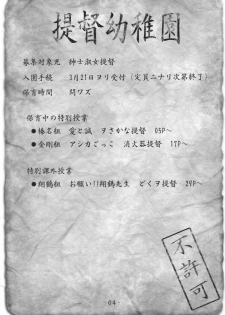 提督幼稚園
募集対象児　紳士淑女提督
入園手続　3月21日ヨリ受付（定員ニナリ次第終了）
保育時間　問ワズ
保育中の特別授業
●榛名組　愛と誠　ヲさかな提督　05P～
●金剛組　アンカごっこ　消火器提督　17P～
特別課外授業
●翔鶴組　お願い!!翔鶴先生　どくヲ提督　29P～
不許可
04